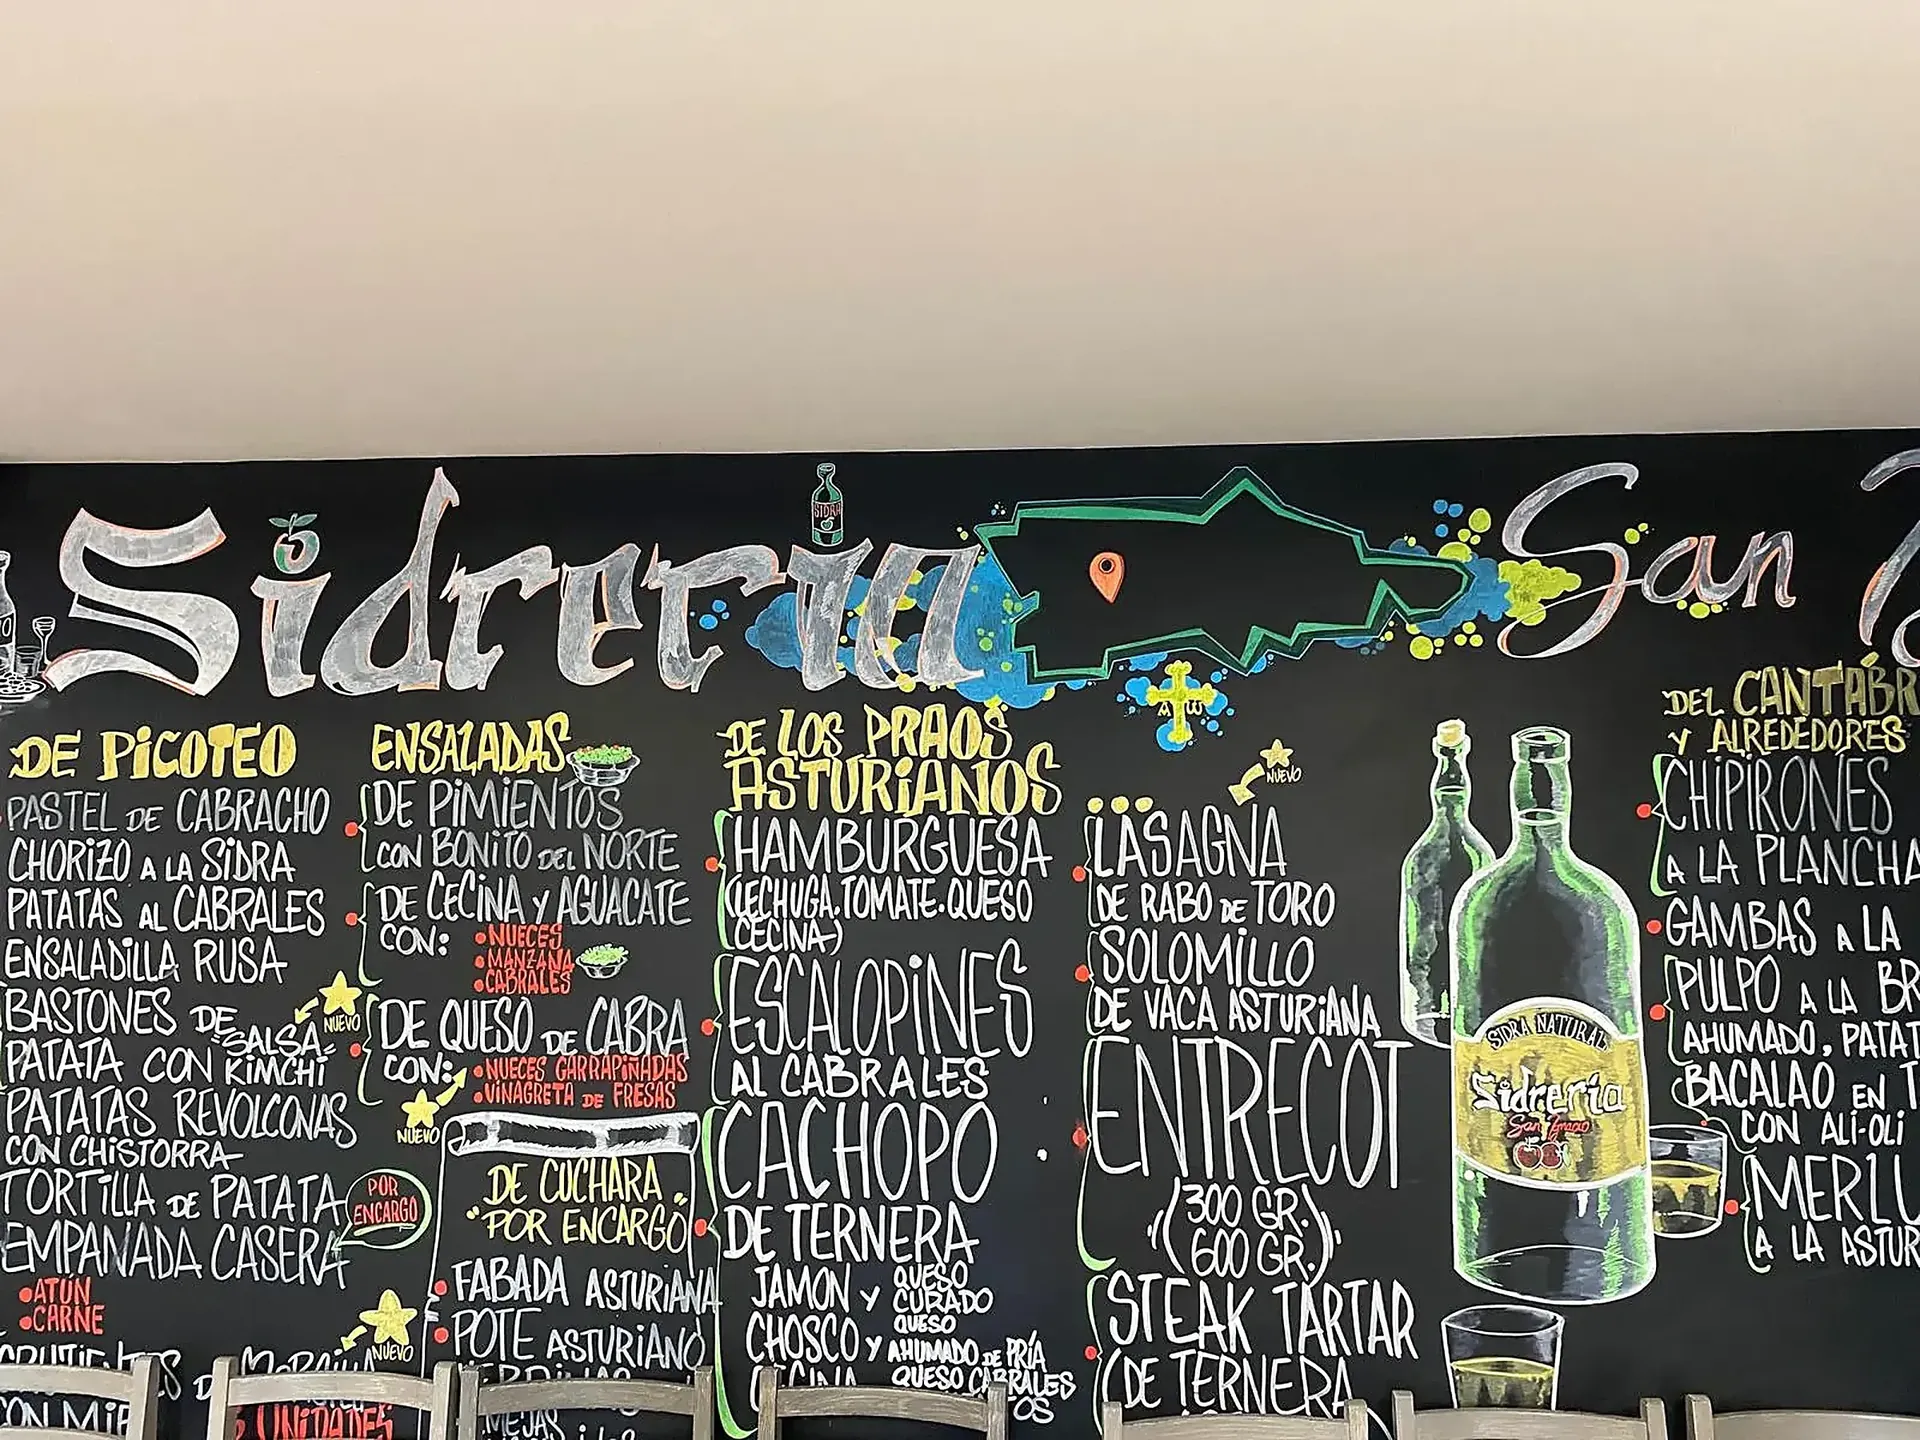 Sidrería
SIDRA
San
DE PICOTEO
PASTEL DE CABRACHO
CHORIZO A LA SIDRA
PATATAS AL CABRALES
ENSALADILLA RUSA
BASTONES DE
PATATA CON "SALSA
KIMCHI"
NUEVO
PATATAS REVOLCONAS
CON CHISTORRA
TORTILLA DE PATATA
EMPANADA CASERA
POR
ENCARGO
•ATÚN
•CARNE
CON MIE
MORCILLA
NUEVO
UNIDADES
ENSALADAS
DE PIMIENTOS
CON BONITO DEL NORTE
DE CECINA Y AGUACATE
CON:
•NUECES
•MANZANA
•CABRALES
DE QUESO DE CABRA
CON:
•NUECES GARRAPIÑADAS
•VINAGRETA DE FRESAS
NUEVO
DE CUCHARA
"POR ENCARGO"
FABADA ASTURIANA
POTE ASTURIANO
DE LOS PRAOS
ASTURIANOS
HAMBURGUESA
(LECHUGA, TOMATE, QUESO
CECINA)
ESCALOPINES
AL CABRALES
CACHOPO
DE TERNERA
JAMON Y QUESO
CURADO
CHOSCO Y QUESO
AHUMADO DE PRÍA
CECINA QUESO CABRALES
...
NUEVO
LASAGNA
DE RABO DE TORO
SOLOMILLO
DE VACA ASTURIANA
ENTRECOT
(300 GR.)
(600 GR.)
STEAK TARTAR
DE TERNERA
SIDRA NATURAL
Sidrería
San Ignacio
DEL CANTÁBR
Y ALREDEDORES
CHIPIRONES
A LA PLANCHA
GAMBAS A LA
PULPO A LA BR
AHUMADO, PATAT
BACALAO EN T
CON ALI-OLI
MERLU
A LA ASTUR